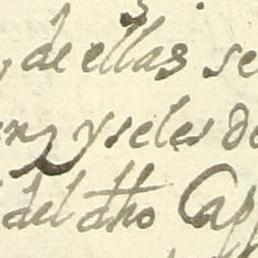 de ellas se
en, y seles de
del dho Cap